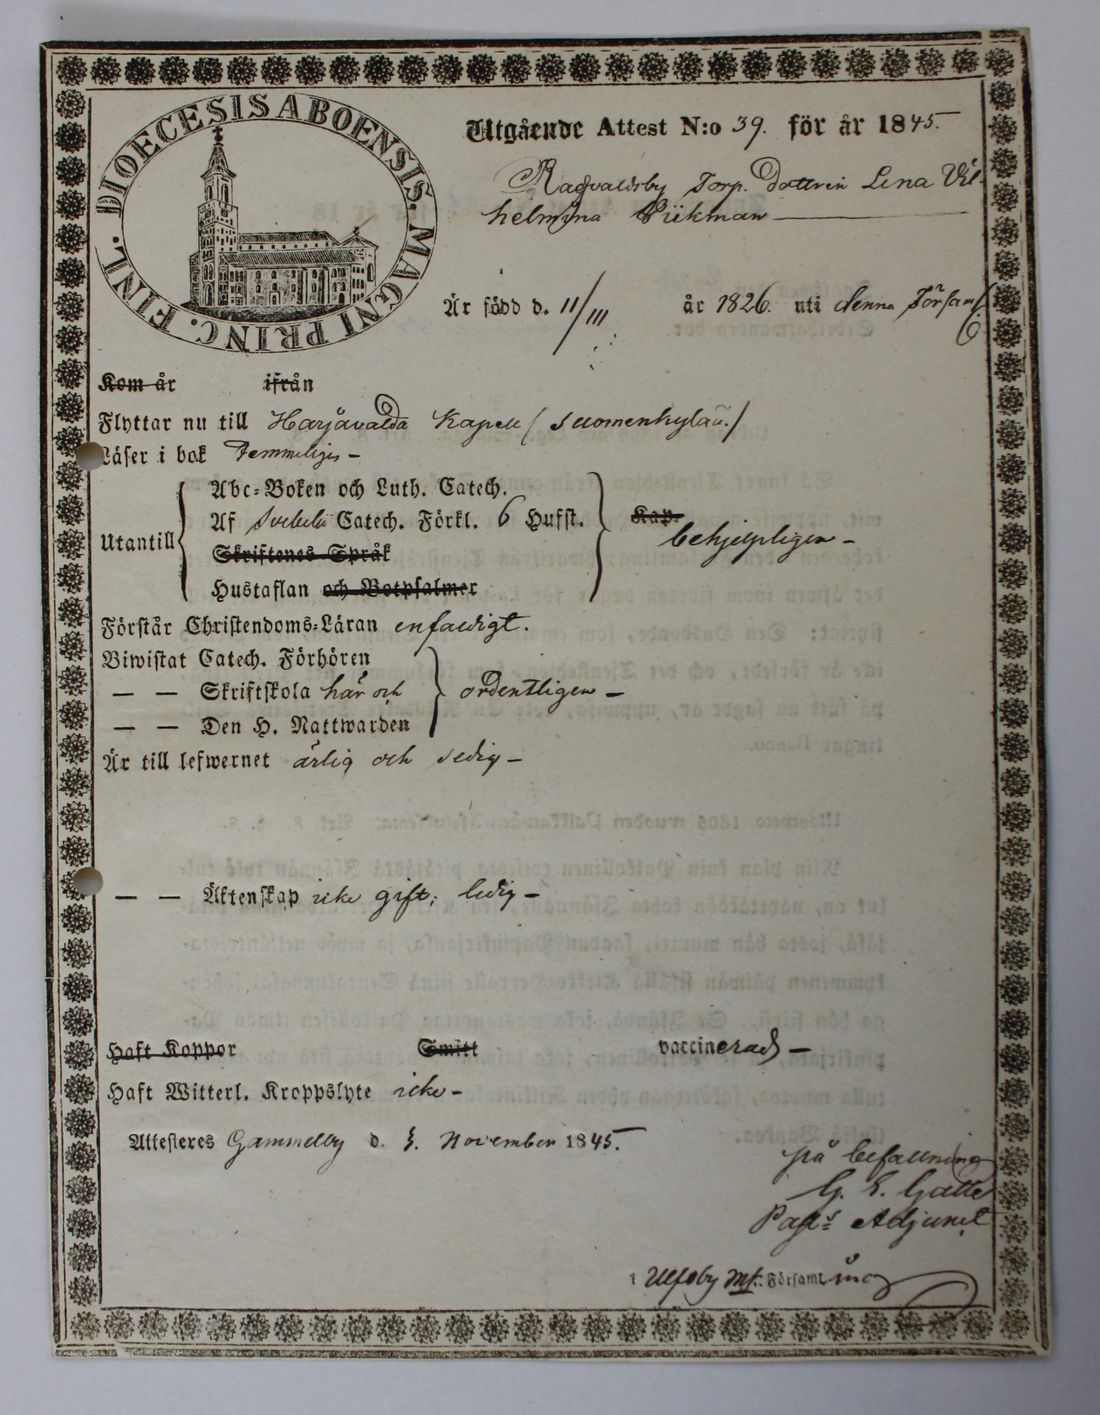 DIOECESIS ABOENSIS. MAGNI PRINC. FINL.
Utgående Attest N:o 39. för år 1845.
Ragvaldsby Torp. Dottren Lena Vil-
helmina Vikman
Är född d. 11/III år 1826. uti denna Församl
Kom år ifrån
Flyttar nu till Harjåvalda Kapell (Suomenkylää.)
Läser i bok Temmeligen –
Utantill
Abc-Boken och Luth. Catech.
Af Svebelii Catech. Förkl. 6 Hufst.
Kap.
behjelpligen –
Skriftenes Språk
Hustaflan och Botpsalmer
Förstår Christendoms-Läran enfaldigt.
Biwistat Catech. Förhören
— — Skriftskola här och ordentligen –
— — Den H. Nattwarden
Är till lefwernet ärlig och sedig –
— — Äktenskap icke gift; ledig –
Haft Koppor Smitt vaccinerad –
Haft Witterl. Kroppslyte icke –
Attesteres Gammelby d. November 1845.
på befallning
G. E.
Past: Adjunct
i Ulfsby Församling